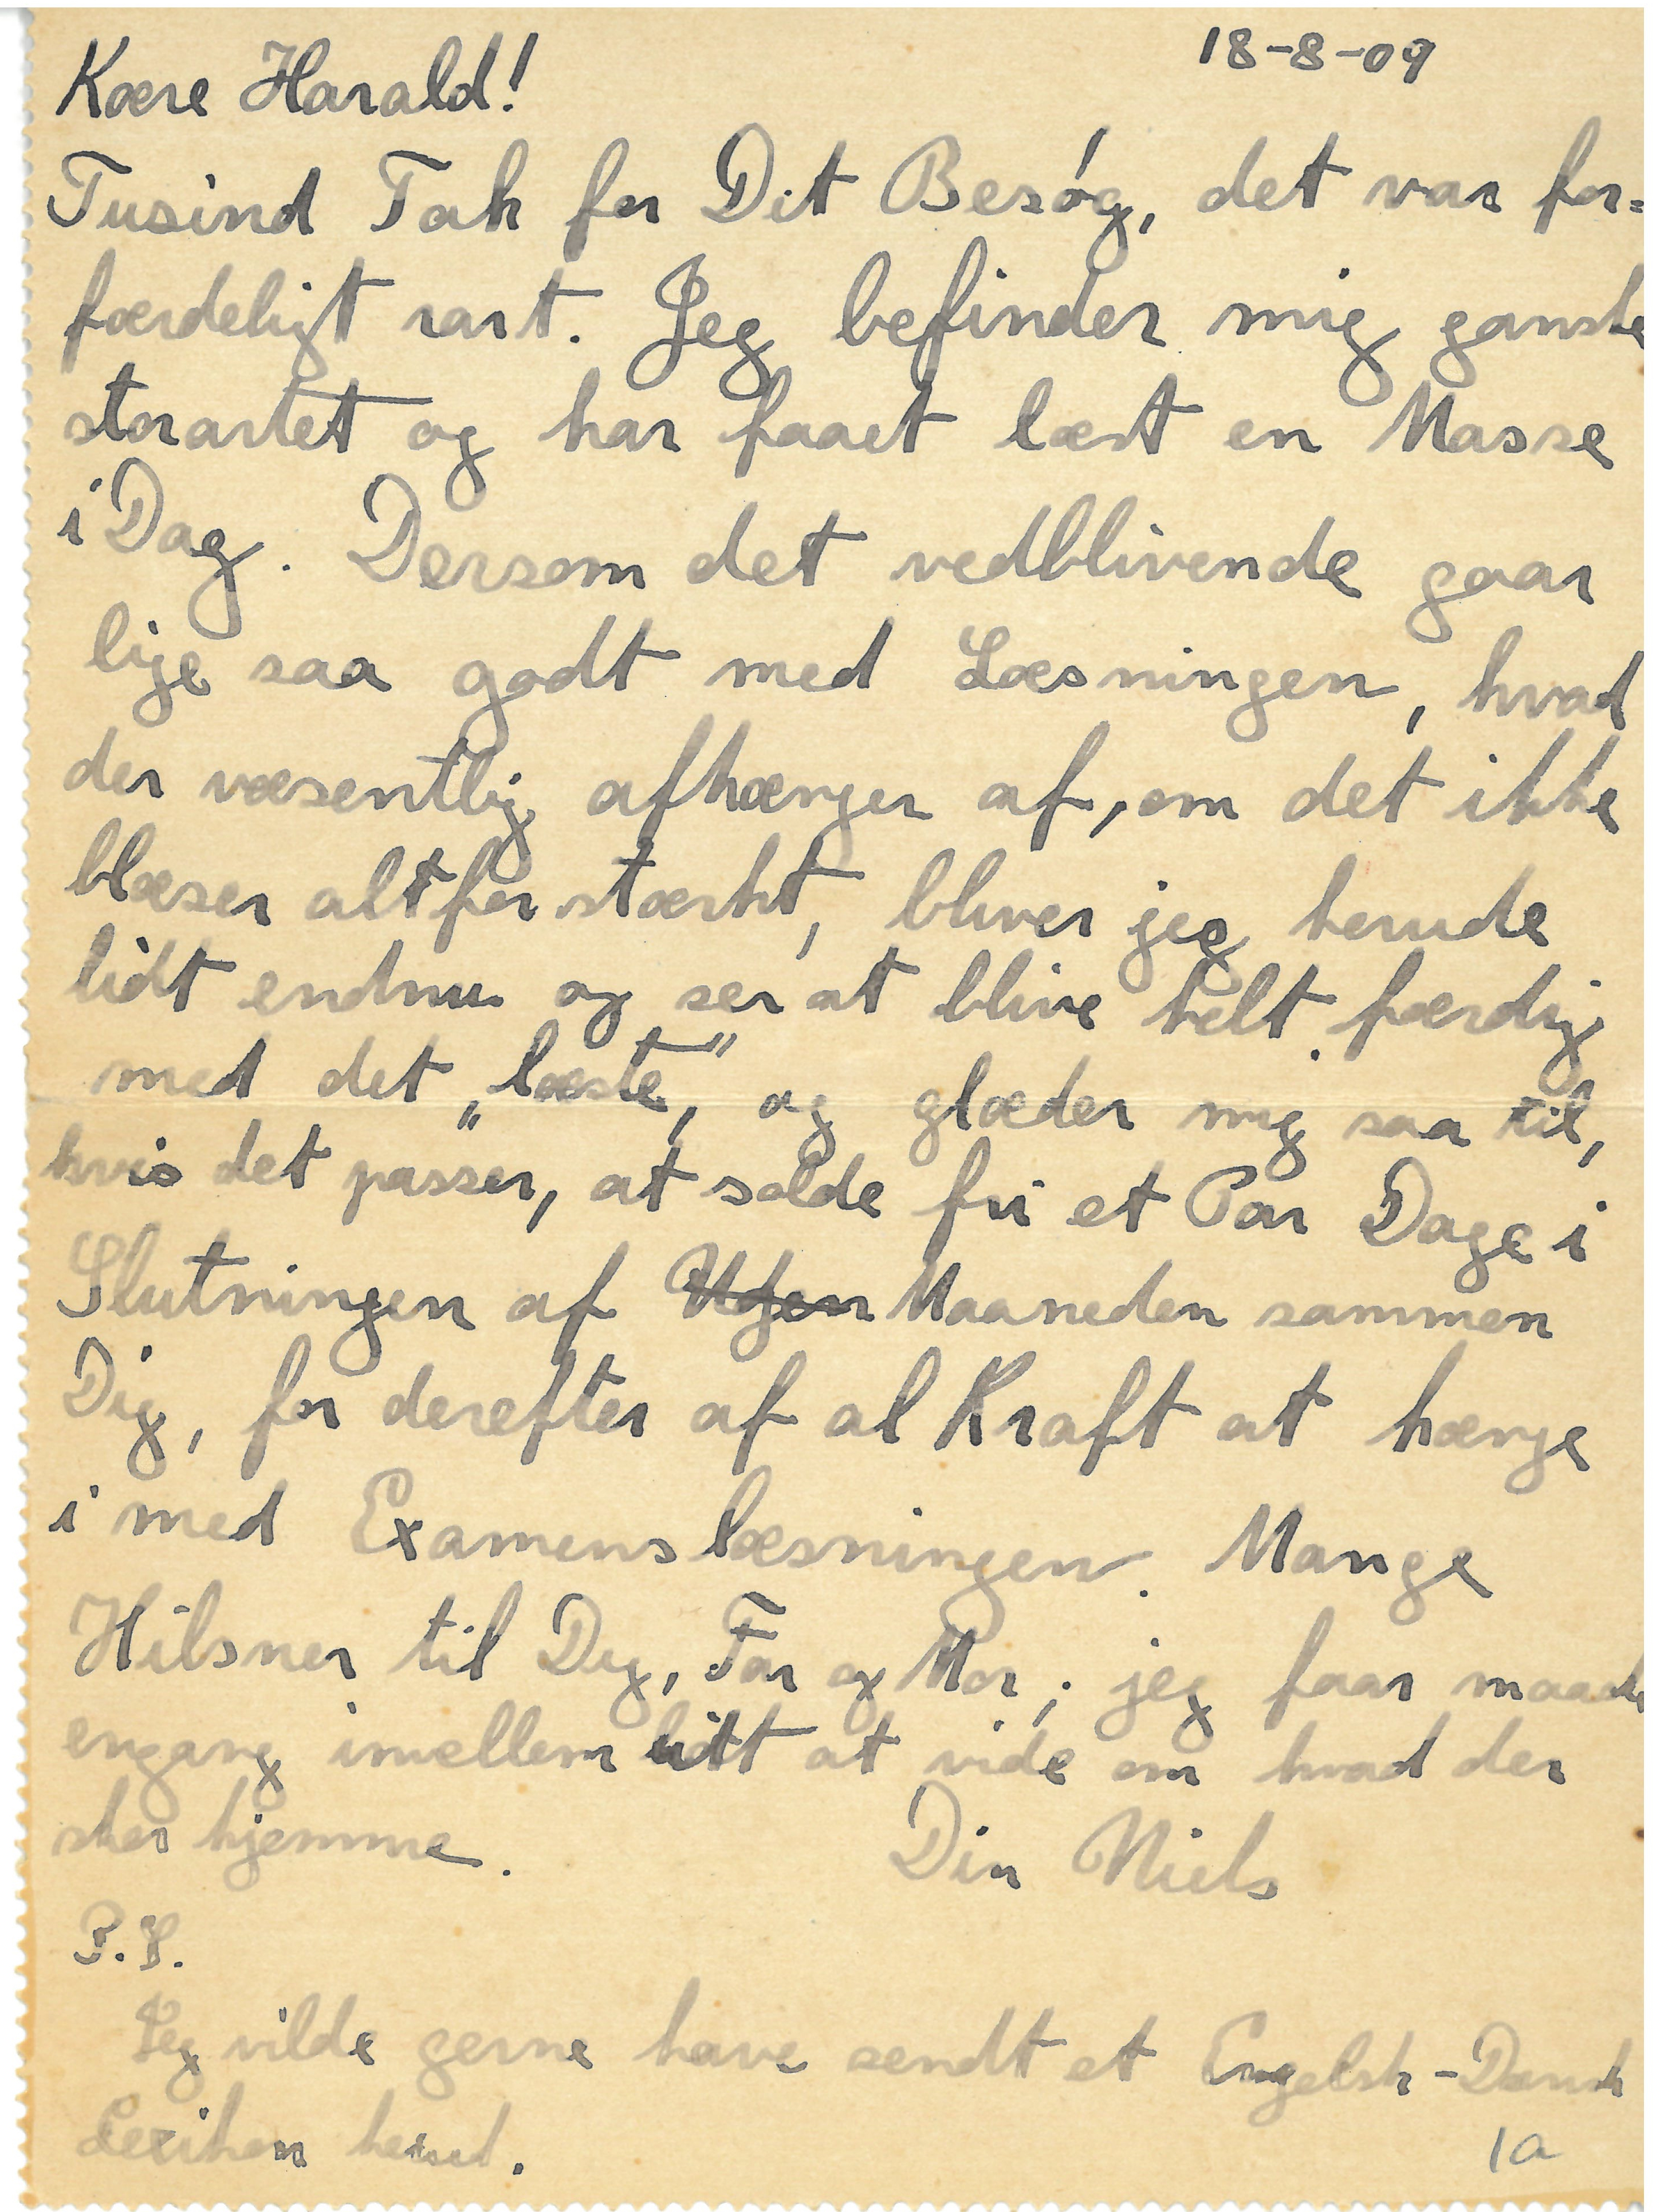 18-8-09
Kære Harald!
Tusind Tak for Dit Besøg, det var for=
færdeligt rart. Jeg befinder mig ganske
storartet og har faaet læst en Masse
i Dag. Dersom det vedblivende gaar
lige saa godt med Læsningen, hvad
der væsentlig afhænger af, om det ikke
blæser altfor stærkt, bliver jeg herude
lidt endnu og ser at blive helt færdig
med det „læste”, og glæder mig saa til,
hvis det passer, at solde fri et Par Dage i
Slutningen af Ugen Maaneden sammen
Dig, for derefter af al Kraft at hænge
i med Examenslæsningen. Mange
Hilsner til Dig, Far og Mor; jeg faar maaske
engang imellem lidt at vide om hvad der
sker hjemme. Din Niels
P.S.
Jeg vilde gerne have sendt et Engelsk-Dansk
Lexikon herud.
1a